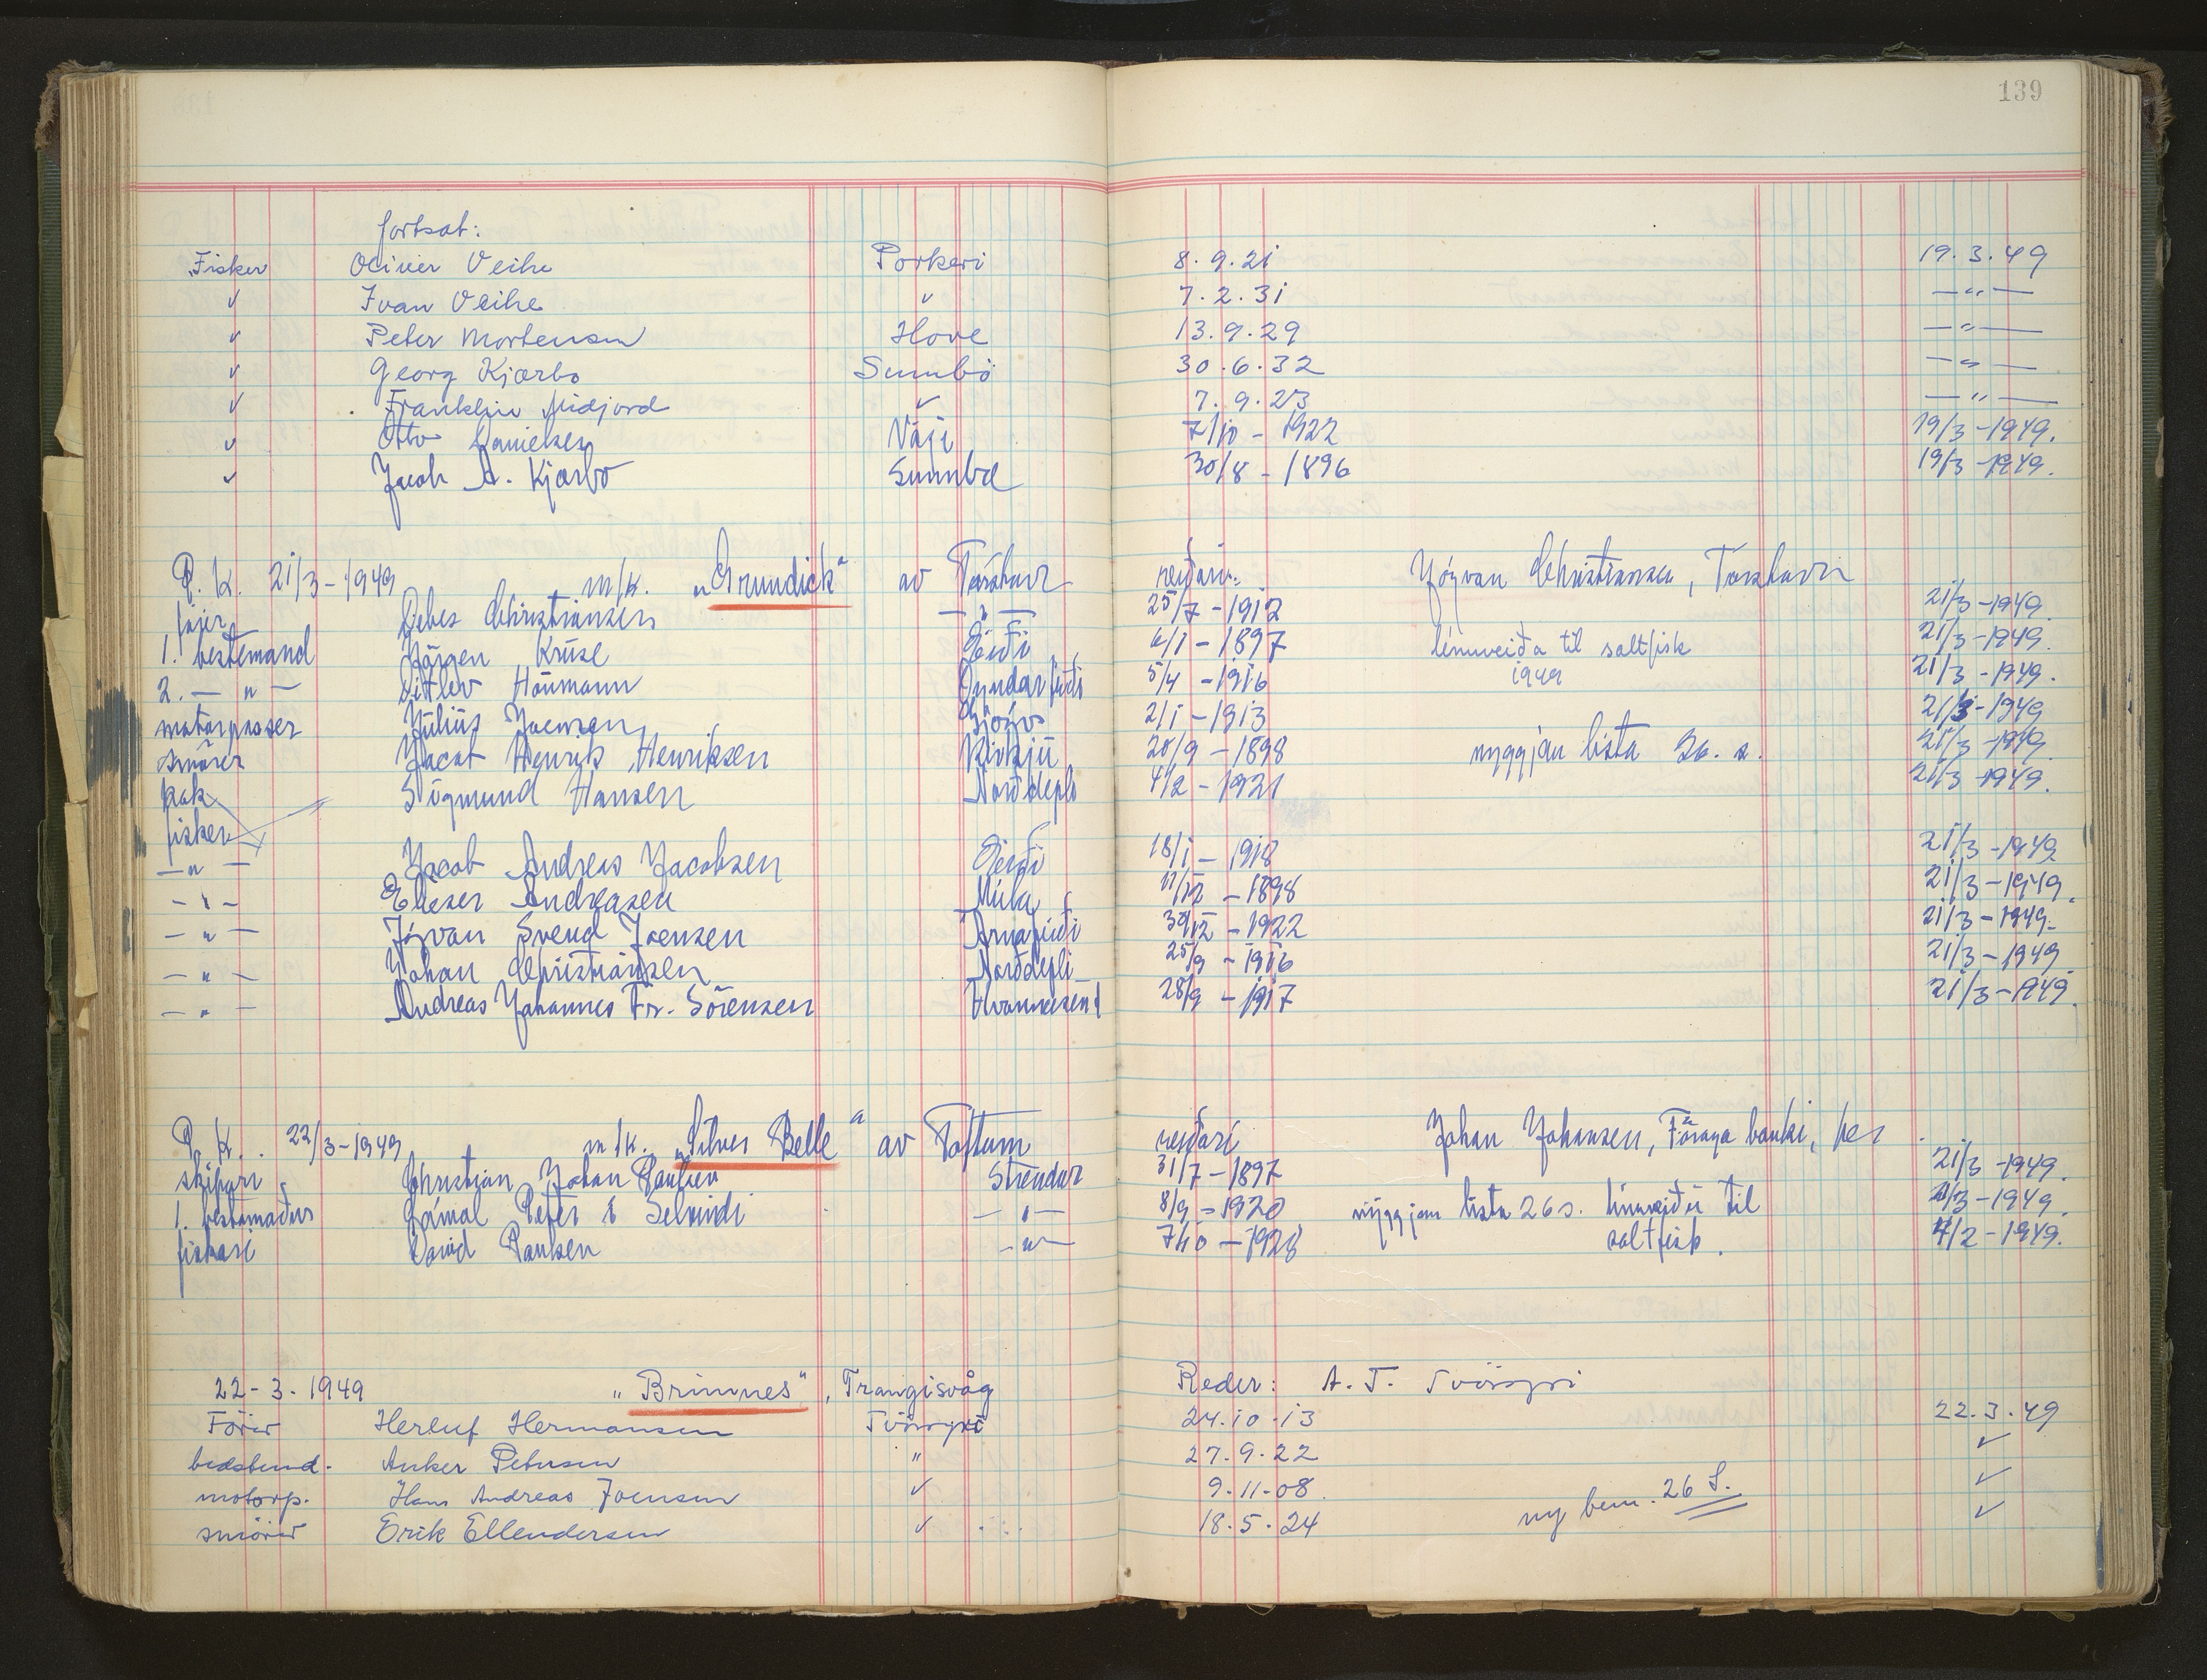 139
fortsat:
Fisker Oliver Veihe Porkeri 8.9.21 19.3.49
✓ Ivan Veihe ✓ 7.2.31 —"—
✓ Peter Mortensen Hove 13.9.29 —"—
✓ Georg Kjærbo Sumbö 30.6.32 —"—
✓ Franklin Midjord ✓ 7.9.23 —"—
✓ Otto Danielsen Vági 7/10 - 1922 19/3 - 1949.
✓ Jacob A. Kjærbo Sumba 30/8 - 1896 19/3 - 1949.
P. K. 21/3 - 1949 m/k. „Grundick“ av Tórshavn reiðari: Jógvan Christiansen, Torshavn
fører Debes Christiansen —"— 25/7 - 1912 21/3 - 1949.
1. bestemand Jörgen Krúse Eiði 6/1 - 1897 línuveiða til saltfisk 21/3 - 1949.
2. —"— Ditlev Hóumann Oyndarfirði 5/4 - 1916 1949 21/3 - 1949.
motorpasser Júliús Joensen Gjógv 2/1 - 1913 21/3 - 1949
smörer Jacob Henrik Henriksen Kirkju 20/9 - 1898 nyggjan lista 26. s. 21/3 - 1949.
kok Sigmund Hansen Norðdepli 4/2 - 1921 21/3 - 1949.
fisker
—"— Jacob Andreas Jacobsen Eiði 18/1 - 1918 21/3 - 1949.
—"— Elieser Andreasen Mikla 11/12 - 1898 21/3 - 1949.
—"— Jógvan Svend Joensen Arnafirði 30/12 - 1922 21/3 - 1949.
—"— Johan Christiansen Norðdepli 25/9 - 1916 21/3 - 1949
—"— Andreas Johannes Fr. Sörensen Hvannesund 28/9 - 1917 21/3 - 1949.
P. K. 22/3 - 1949 m/k. „Silver Belle“ av Toftum reiðari Johan Johansen, Föroya banki, her
skipari Christian Johan Paulsen Strendur 31/7 - 1897 21/3 - 1949.
1. bestamaður Jámal Peter í Selvindi —"— 8/9 - 1920 nýggjan lista 26 s. línuveiðu til 21/3 - 1949.
fiskari David Paulsen —"— 7/10 - 1928 saltfisk. 4/2 - 1949.
22-3-1949 „Brimnes“, Trangisvåg Reder: A. T. Tvöroyri
Förer Herluf Hermansen Tvöroyri 24.10.13 22.3.49
bedstemd. Anker Petersen " 27.9.22 ✓
motorp. Hans Andreas Joensen ✓ 9-11-08. ✓
smörer Erik Ellendersen ✓ 18.5.24 ny bem. 26 S. ✓